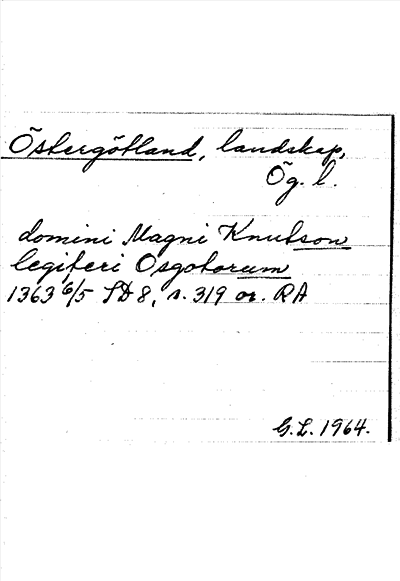 Östergötland, landskap,
Ög. l.
domini Magni Knutson
legiferi Osgotorum
1363 6/5 SD 8, s. 319 or. RA
G.L. 1964.